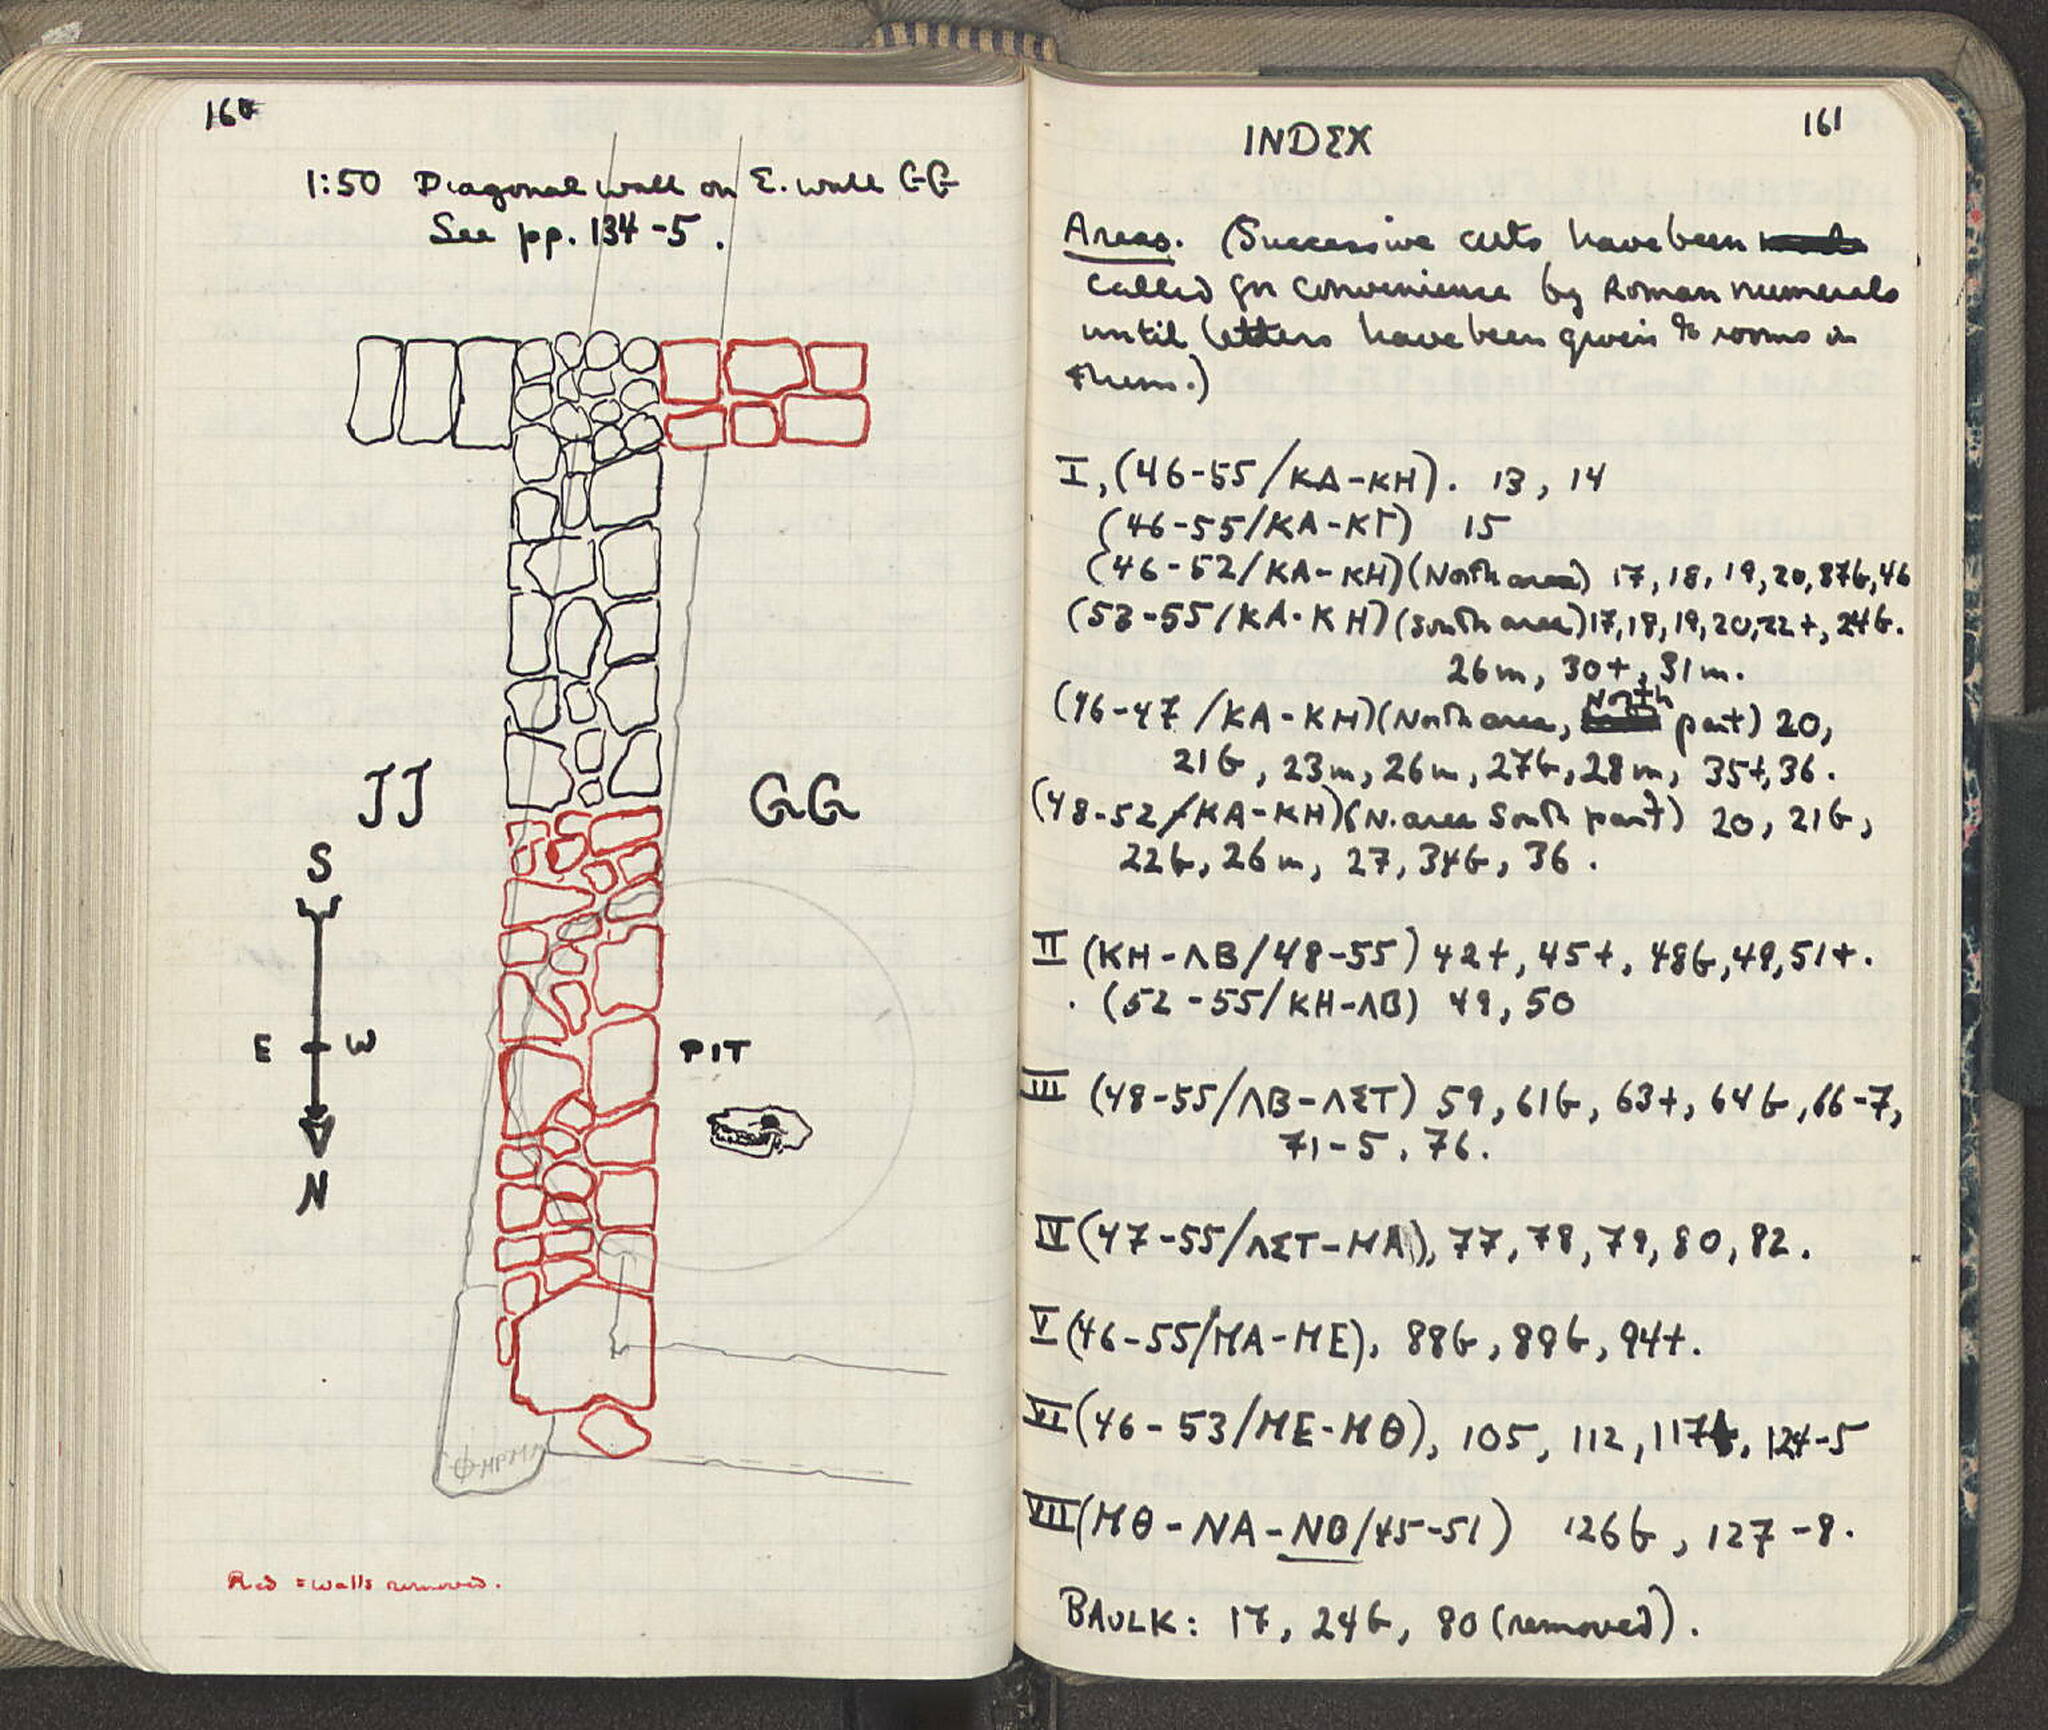 160
1:50 Diagonal wall on E. wall GG
See pp. 134-5.
JJ
GG
S
E
W
PIT
N
Red = walls removed.
161
INDEX
Areas. (Successive cuts have been
called for convenience by Roman numerals
until letters have been given to rooms in
them.)
I, (46-55/KA-KH). 13, 14
(46-55/KA-KΓ) 15
(46-52/KA-KH)(North area) 17, 18, 19, 20, 87b, 46
(53-55/KA-KH)(South area) 17, 18, 19, 20, 22t, 24b.
26m, 30t, 31m.
(46-47/KA-KH)(North area, North part) 20,
21b, 23m, 26m, 27b, 28m, 35t, 36.
(48-52/KA-KH)(N. area South part) 20, 21b,
22b, 26m, 27, 34b, 36.
II (KH-ΛB/48-55) 42t, 45t, 48b, 49, 51t.
(52-55/KH-ΛB) 49, 50
III (48-55/ΛB-ΛΣT) 59, 61b, 63t, 64b, 66-7,
71-5, 76.
IV (47-55/ΛΣT-MA), 77, 78, 79, 80, 82.
V (46-55/MA-ME), 88b, 89b, 94t.
VI (46-53/ME-MΘ), 105, 112, 117, 124-5
VII (MΘ-NA-NB/45-51) 126b, 127-8.
BAULK: 17, 24b, 80 (removed).